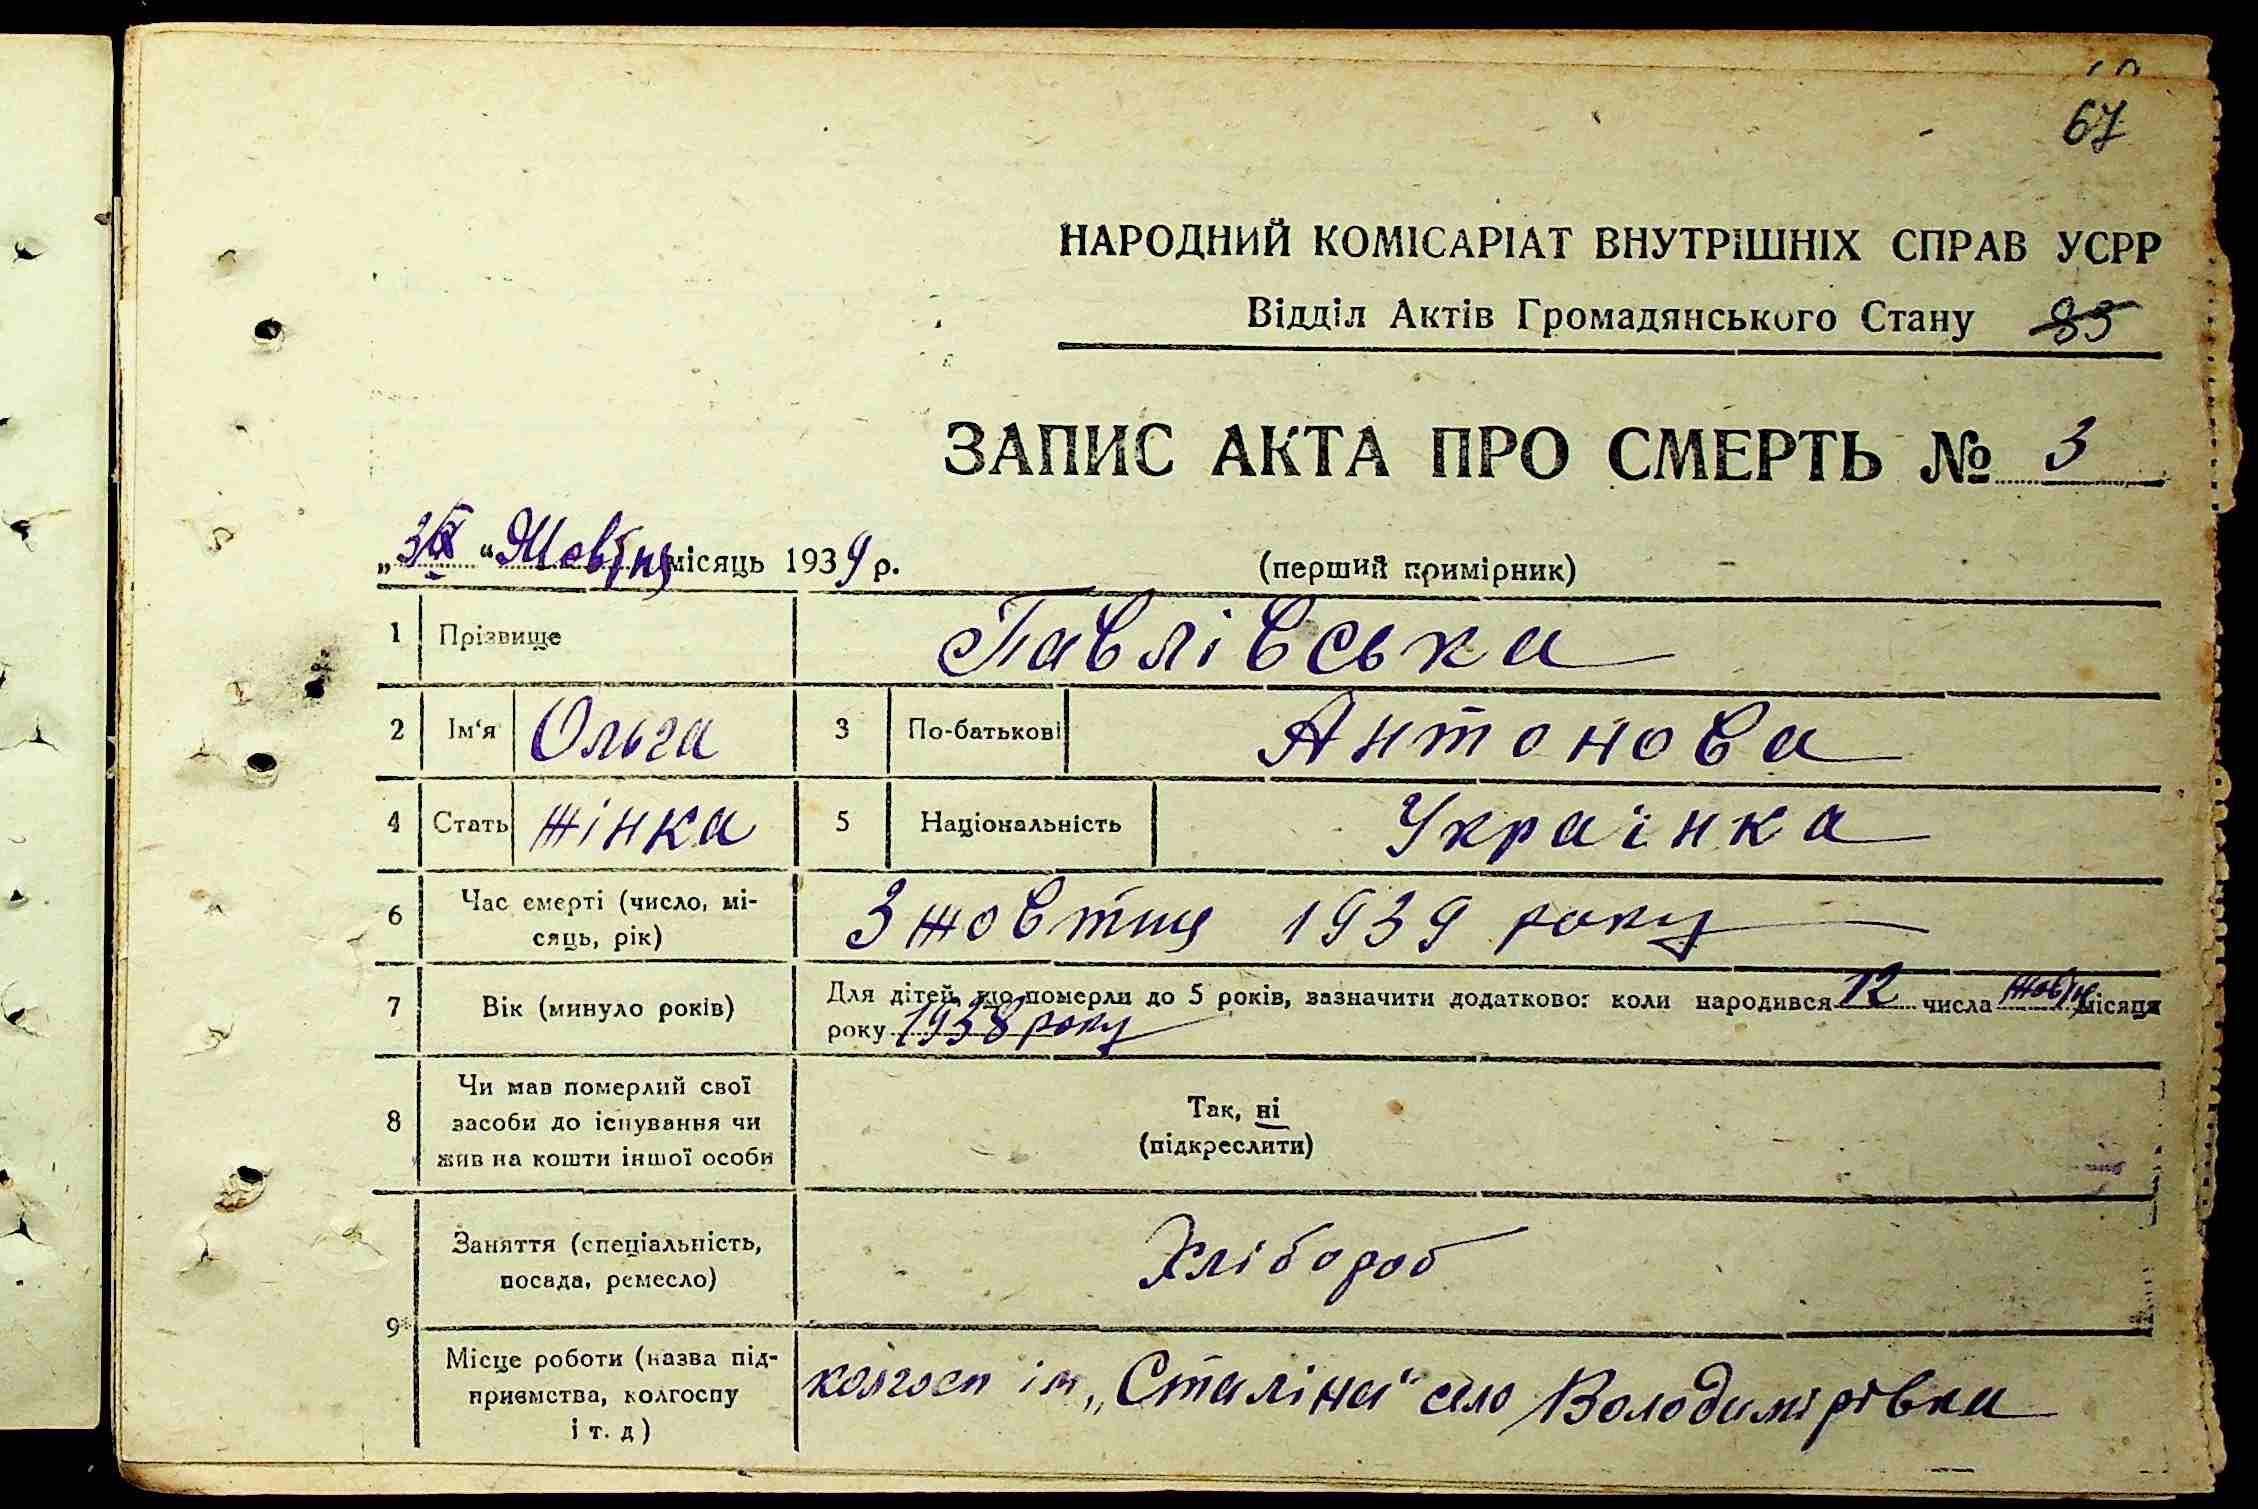 67
НАРОДНИЙ КОМІСАРІАТ ВНУТРІШНІХ СПРАВ УСРР
Відділ Актів Громадянського Стану 83
ЗАПИС АКТА ПРО СМЕРТЬ № 3
„3 “ Жовтня місяць 1939 р. (перший примірник)
1 Прізвище Павлівська
2 Ім‘я Ольга 3 По-батькові Антонова
4 Стать жінка 5 Національність Українка
6 Час смерті (число, мі- 3 жовтня 1939 року
сяць, рік)
7 Вік (минуло років) Для дітей, що померли до 5 років, зазначити додатково: коли народився 12 числа жовтня місяця
року 1938 року
Чи мав померлий свої
8 засоби до існування чи
жив на кошти іншої особи
Так, ні
(підкреслити)
9 Заняття (спеціальність,
посада, ремесло) Хлібороб
Місце роботи (назва під-
приємства, колгоспу
і т. д)
колгосп ім „Сталіна“ село Володимирівка